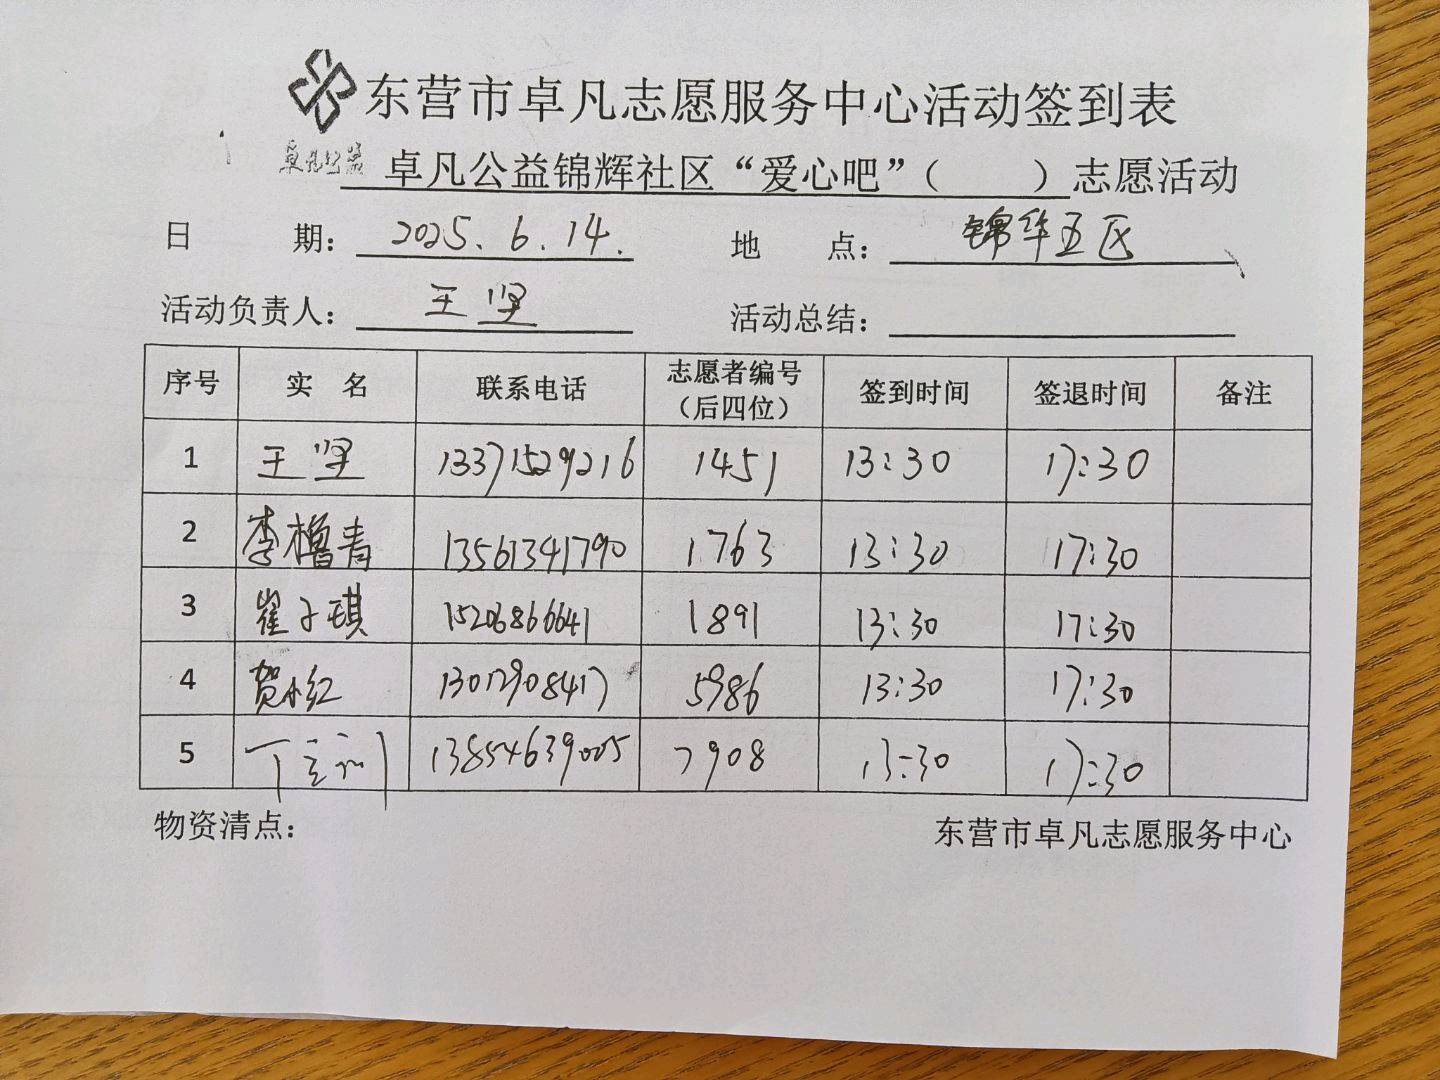 东营市卓凡志愿服务中心活动签到表
卓凡公益
卓凡公益锦辉社区“爱心吧”（　　）志愿活动
日　期：2025.6.14.　地　点：锦华五区
活动负责人：王坚　活动总结：
序号　实　名　联系电话　志愿者编号（后四位）　签到时间　签退时间　备注
1　王坚　13371529216　1451　13:30　17:30
2　李橹青　13561341790　1763　13:30　17:30
3　崔子琪　15206866641　1891　13:30　17:30
4　贺小红　13012908417　5986　13:30　17:30
5　丁　13854639005　7908　13:30　17:30
物资清点：　东营市卓凡志愿服务中心